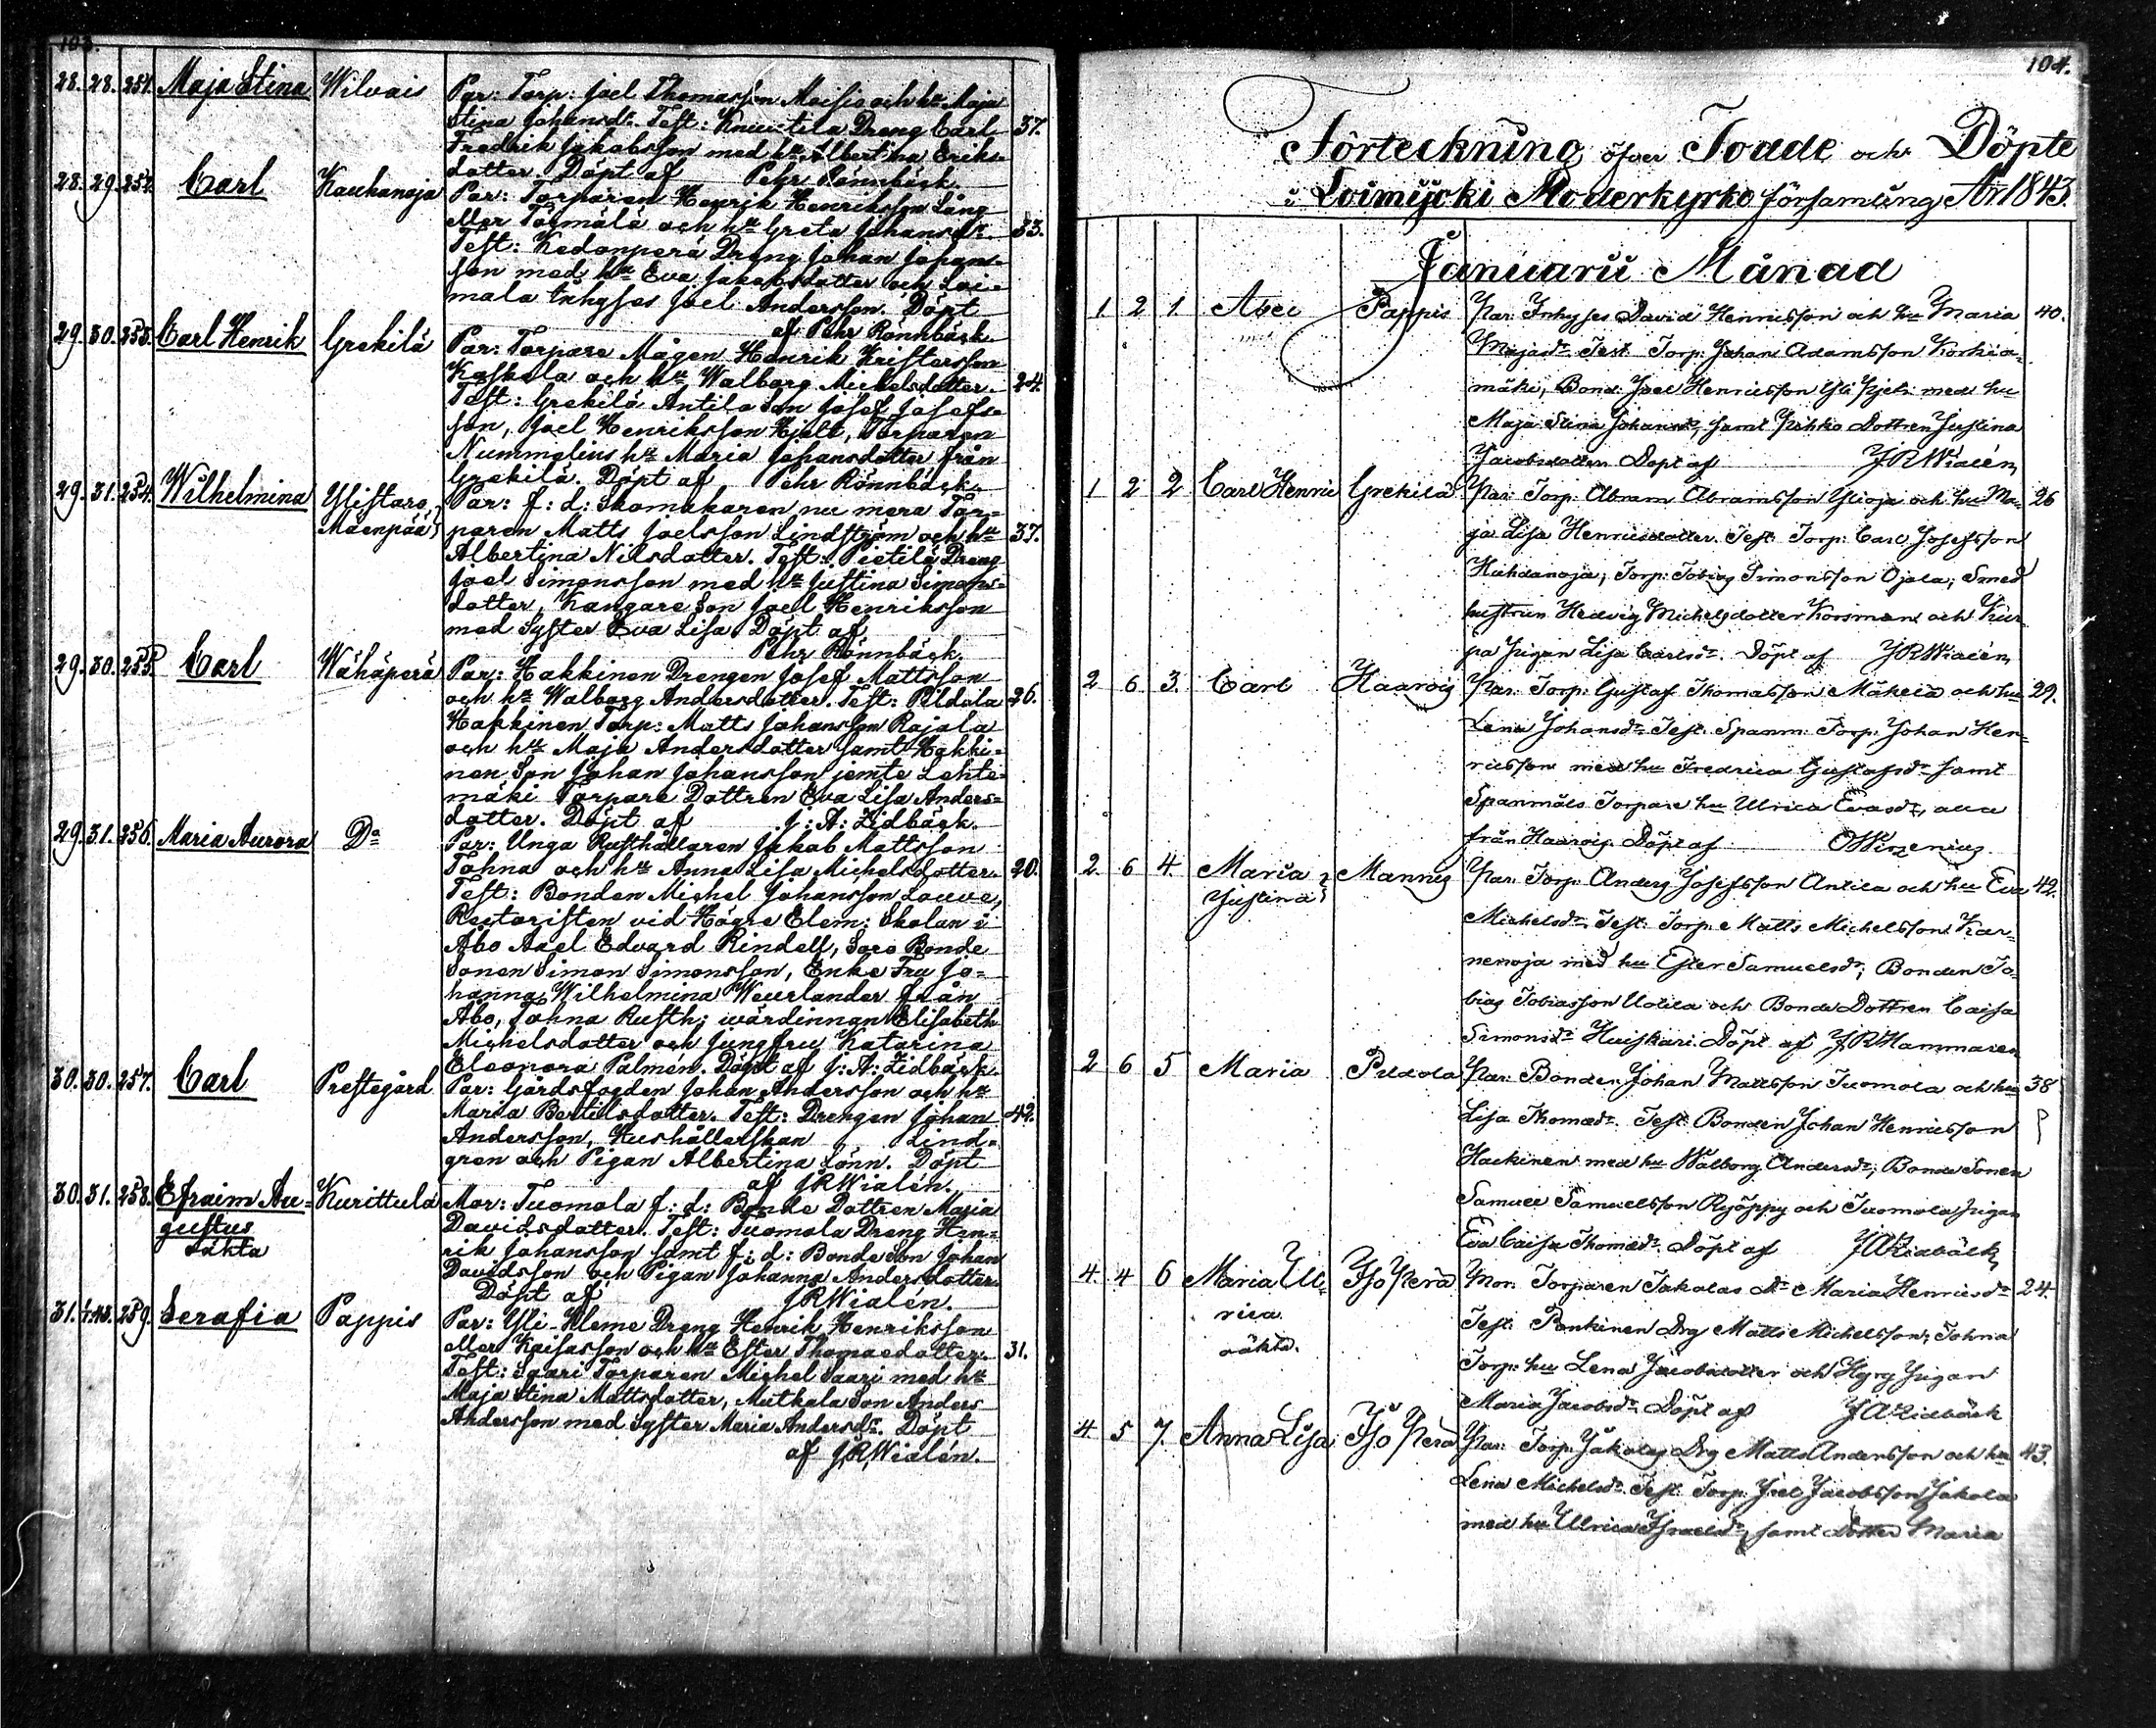 103.
28. 28. 251. Maja Stina Wilvais Par: Torp: Joel Thomasson Moisio och hu Maja
Stina Johansdr. Test: Knuutila Dreng Carl 37.
Fredrik Jakobsson med hu Albertina Eriks-
dotter. Döpt af Pehr Rönnbäck.
28. 29. 252. Carl Kauhanoja Par: Torparen Henrik Henriksson Lång
eller Törmälä och hu Greta Johansdr. 33.
Test: Kedonperä Dreng Johan Johans-
son med hu Eva Jakobsdotter och Loi-
mala Inhyses Joel Andersson. Döpt
af Pehr Rönnbäck.
29. 30. 253. Carl Henrik Grekilä Par: Torpare Mågen Henrik Kristersson
Koskola och hu Walborg Michelsdotter. 24.
Test: Grekilä Antila Son Josef Josefs-
son, Joel Henriksson Hjelt, Torparen
Nummelins hu Maria Johansdotter från
Grekilä. Döpt af Pehr Rönnbäck.
29. 31. 254. Wilhelmina Ylistaro, Par: f: d: Skomakaren nu mera Tor-
Mäenpää paren Matts Joelsson Lindström och hu 37.
Albertina Nilsdotter. Test: Pietilä Dreng
Joel Simonsson med hu Justina Simons-
dotter, Kangare Son Joel Henriksson
med Syster Eva Lisa Döpt af
Pehr Rönnbäck.
29. 30. 255. Carl Wähäperä Par: Hakkinen Drengen Josef Mattsson
och hu Walborg Andersdotter. Test: Peldola 26.
Hakkinen Torp: Matts Johansson Rajala
och hu Maja Andersdotter samt Hakki-
nen Son Johan Johansson jemte Lehte-
mäki Torpare Dottren Eva Lisa Anders-
dotter. Döpt af J: A: Zidbäck.
29. 31. 256. Maria Aurora Do Par: Unga Rusthållaren Jakob Mattsson
Tohna och hu Anna Lisa Michelsdotter. 20.
Test: Bonden Michel Johansson Louve,
Rectoristen vid Högre Elem: Skolan i
Åbo Axel Edvard Rindell, Soro Bonde
Sonen Simon Simonsson, Enke Fru Jo-
hanna Wilhelmina Weurlander från
Åbo, Tohna Rusth: wärdinnan Elisabeth
Michelsdotter och Jungfru Katarina
Eleonora Palmén. Döpt af J: A: Zidbäck.
30. 30. 257. Carl Prestegård Par: Gårdsfogden Johan Andersson och hu
Maria Bertilsdotter. Test: Drengen Johan 42.
Andersson, Hushållerskan Lind-
gren och Pigan Albertina Lönn. Döpt
af JRWialén.
30. 31. 258. Efraim Au- Kurittula Mor: Tuomola f: d: Bonde Dottren Maria
gustus Davidsdotter. Test: Tuomola Dreng Hen-
oäkta rik Johansson samt f: d: Bonde Son Johan
Davidsson och Pigan Johanna Andersdotter.
Döpt af JRWialén.
31. 1/1.43. 259. Serafia Pappis Par: Yli-Kleme Dreng Henrik Henriksson
eller Kaisasson och hu Ester Thomasdotter. 31.
Test: Saari Torparen Michel Saari med hu
Maja Stina Mattsdotter, Mutkala Son Anders
Andersson med Syster Maria Andersdr. Döpt
af JRWialén.
104.
Förteckning öfver Födde och Döpte
i Loimijoki Moderkyrko församling År 1843.
Januarii Månad
1 2 1 Axel Pappis Par: Inhyses David Henricsson och hu Maria 40.
Majasdr Test. Torp: Johan Adamsson Korkia-
mäki, Bond: Joel Henricsson Yli med hu
Maja Stina Johansdr, samt Pihko Dottren Justina
Jacobsdotter Döpt af JRWialén,
1 2 2 Carl Henric Grekilä Par: Torp: Abram Abramsson Ylioja och hu Ma- 26
ja Lisa Henricsdotter. Test. Torp: Carl Josefsson
Huhdanoja, Torp: Tobias Simonsson Ojala, Smed
hustrun Hedvig Michelsdotter Korsman och Kur-
pa Pigan Lisa Carlsdr. Döpt af JRWialén,
2 6 3. Carl Haarois Par: Torp: Gustaf Thomasson Mäkelä och hu 29.
Lena Johansdr Test. Spanm: Torp: Johan Hen-
ricsson med hu Fredrica Gustafsdr samt
Spanmåls Torpare hu Ulrica Evasdr, alla
från Haarois. Döpt af OWirzenius.
2. 6 4. Maria Mannis Par: Torp: Anders Josefsson Antila och hu Eva 42.
Justina Michelsdr. Test: Torp: Matts Michelsson Kar-
nenoja med hu Ester Samuelsdr, Bonden To-
bias Tobiasson Uotila och Bonde Dottren Caisa
Simonsdr Huiskari. Döpt af JRHammaren
2 6 5 Maria Peldola Par: Bonden Johan Mattsson Tuomola och hu 38
Lisa Thomædr. Test. Bonden Johan Henricsson
Hackinen med hu Walborg Andersdr, Bonde Sonen
Samuel Samuelsson Ryöppy och Tuomola Pigan
Eva Caisa Thomædr. Döpt af JAZidbäck,
4. 4 6 Maria Ul- Iso Perä Mor: Torparen Jakolas Dr Maria Henricsdr 24.
rica Test. Penkinen Drg Matts Michelsson, Tohna
oäkta. Torp: hu Lena Jacobsdotter och Hyrg Pigan
Maria Jacobsdr Döpt af JAZidbäck
4 5 7. Anna Lisa Iso Perä Par: Torp: Jakolas Drg Matts Andersson och hu 43.
Lena Michelsdr. Test. Torp: Joel Jacobsson Jakola
med hu Ulrica Israelsdr, samt Dotter Maria